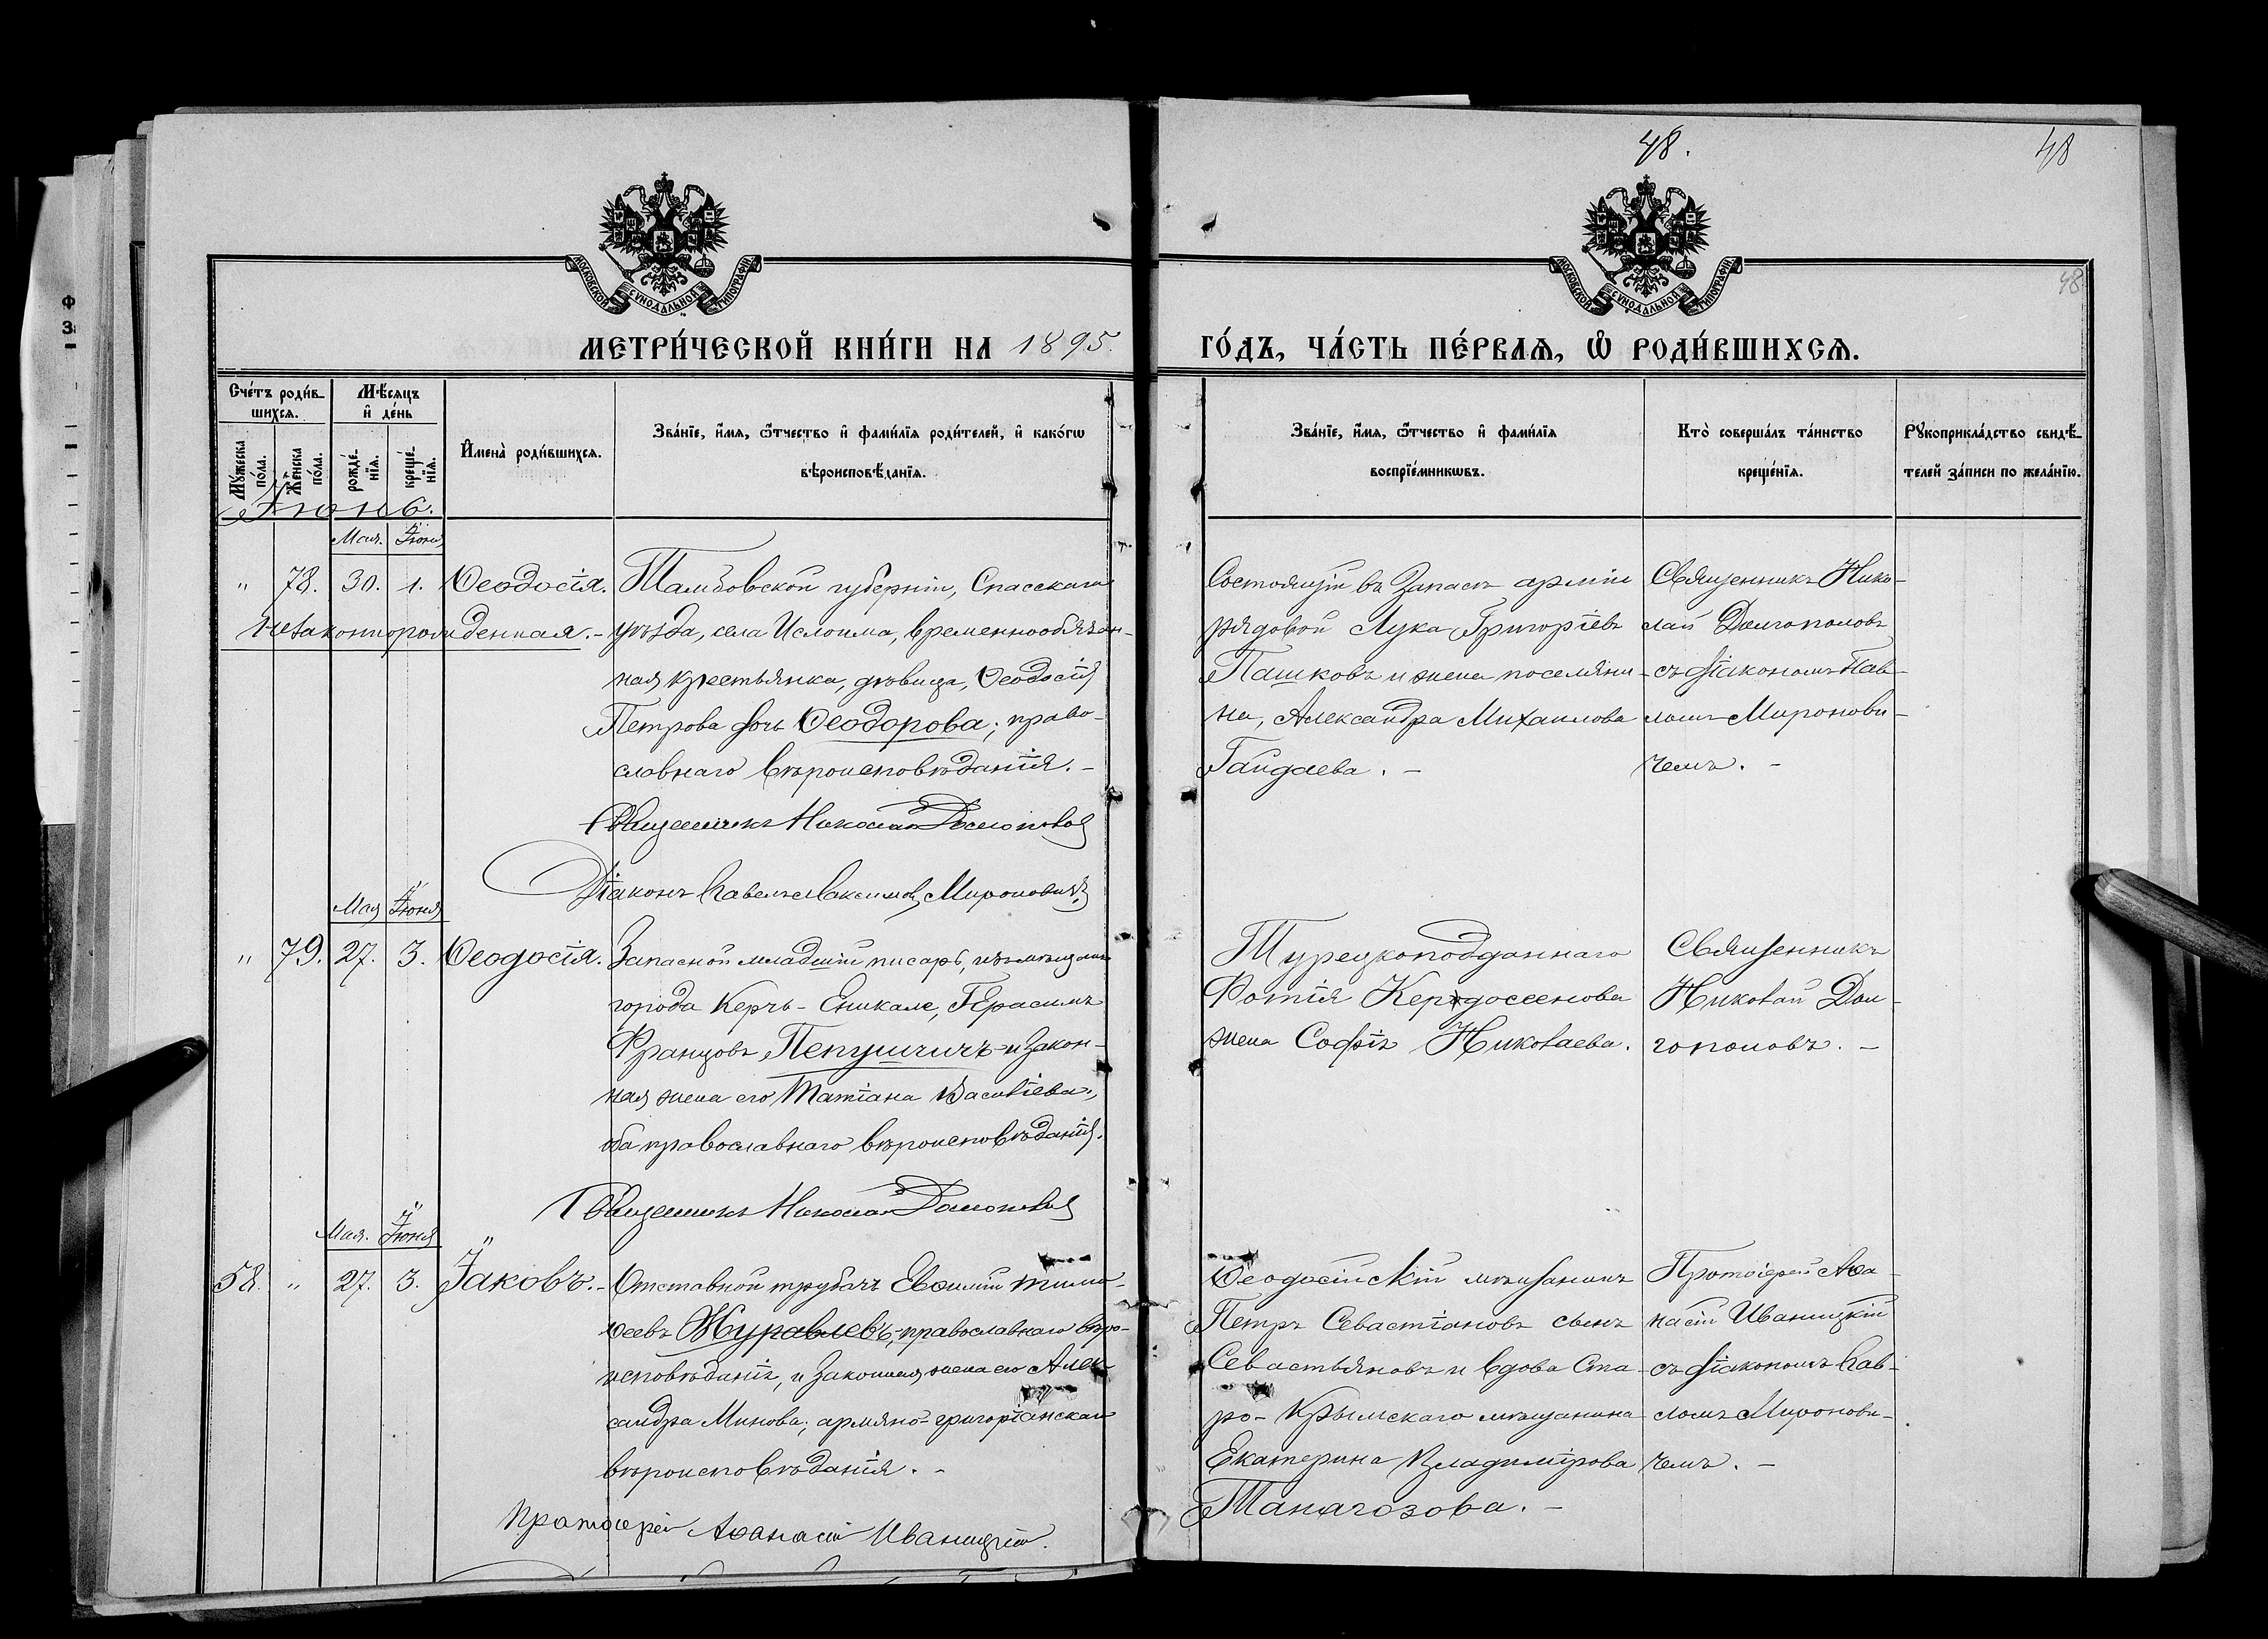 48.
48
48
МОСКОВСКОЙ СУНОДАЛЬНОЙ ТИПОГРАФІИ
МОСКОВСКОЙ СУНОДАЛЬНОЙ ТИПОГРАФІИ
МЕТРИ́ЧЕСКОЙ КНИ́ГИ НА 1895.
ГО́ДЪ, ЧА́СТЬ ПЕ́РВАѦ, Ѡ҆ РОДИ́ВШИХСѦ.
Сче́тъ роди́в-
шихсѧ.
Мѣ́сяцъ
и҆ де́нь
Мꙋ́жеска
по́ла.
Же́нска
по́ла.
рожде́-
нїѧ.
креще́-
нїѧ.
И҆мена̀ роди́вшихсѧ.
Зва́нїе, и҆́мѧ, ѻ҆́тчество и҆ фами́лїѧ роди́телей, и҆ како́гѡ
вѣроисповѣ́данїѧ.
Зва́нїе, и҆́мѧ, ѻ҆́тчество и҆ фами́лїѧ
воспрїе́мникѡвъ.
Кто̀ соверша́лъ та́инство
креще́нїѧ.
Рꙋкоприкла́дство свидѣ́-
телей за́писи по жела́нїю.
Іюнь.
Мая. Іюня
" 78. 30. 1. Ѳеодосія.
Незаконнорожденная.-
Тамбовской губерніи, Спасскаго
уѣзда, села Ислоима, временнообязан-
ная крестьянка, дѣвица, Ѳеодосія
Петрова дочь Ѳеодорова; право-
славнаго вѣроисповѣданія. -
Священникъ Николай Долгополовъ
Діаконъ Павелъ Максимовъ Мироновичъ
Состоящій въ Запасѣ арміи
рядовой Лука Григоріевъ
Пашковъ и жена поселяни-
на, Александра Михаилова
Гайдаева. -
Священникъ Нико-
лай Долгополовъ
съ діакономъ Пав-
ломъ Миронови-
чемъ. -
Мая Іюня
" 79. 27. 3. Ѳеодосія.
Запасной младшій писарь, изъ мѣщанъ
города Керчь-Еникале, Герасимъ
Францовъ Пепушичъ и закон-
ная жена его Татіана Василіева,
оба православнаго вѣроисповѣданія.
Священникъ Николай Долгополовъ
Турецкоподданнаго
Фотія
жена Софія Николаева.
Священникъ
Николай Дол-
гополовъ. -
Мая. Іюня
58. " 27. 3. Іаковъ.-
Отставной трубачъ Евѳимій Тимо-
ѳеевъ Журавлевъ, православнаго вѣро-
исповѣданія, и законная жена его Алек-
сандра Минова; армяно-григоріанскаго
вѣроисповѣданія. -
Протоіерей Аѳанасій Иваницкій.
Ѳеодосійскій мѣщанинъ
Петръ Севастіановъ сынъ
Севастьяновъ и вдова Ста-
ро-Крымскаго мѣщанина
Екатерина Владимірова
Танагозова. -
Протоіерей Аѳа-
насій Иваницкій
съ діакономъ Пав-
ломъ Миронови-
чемъ. -